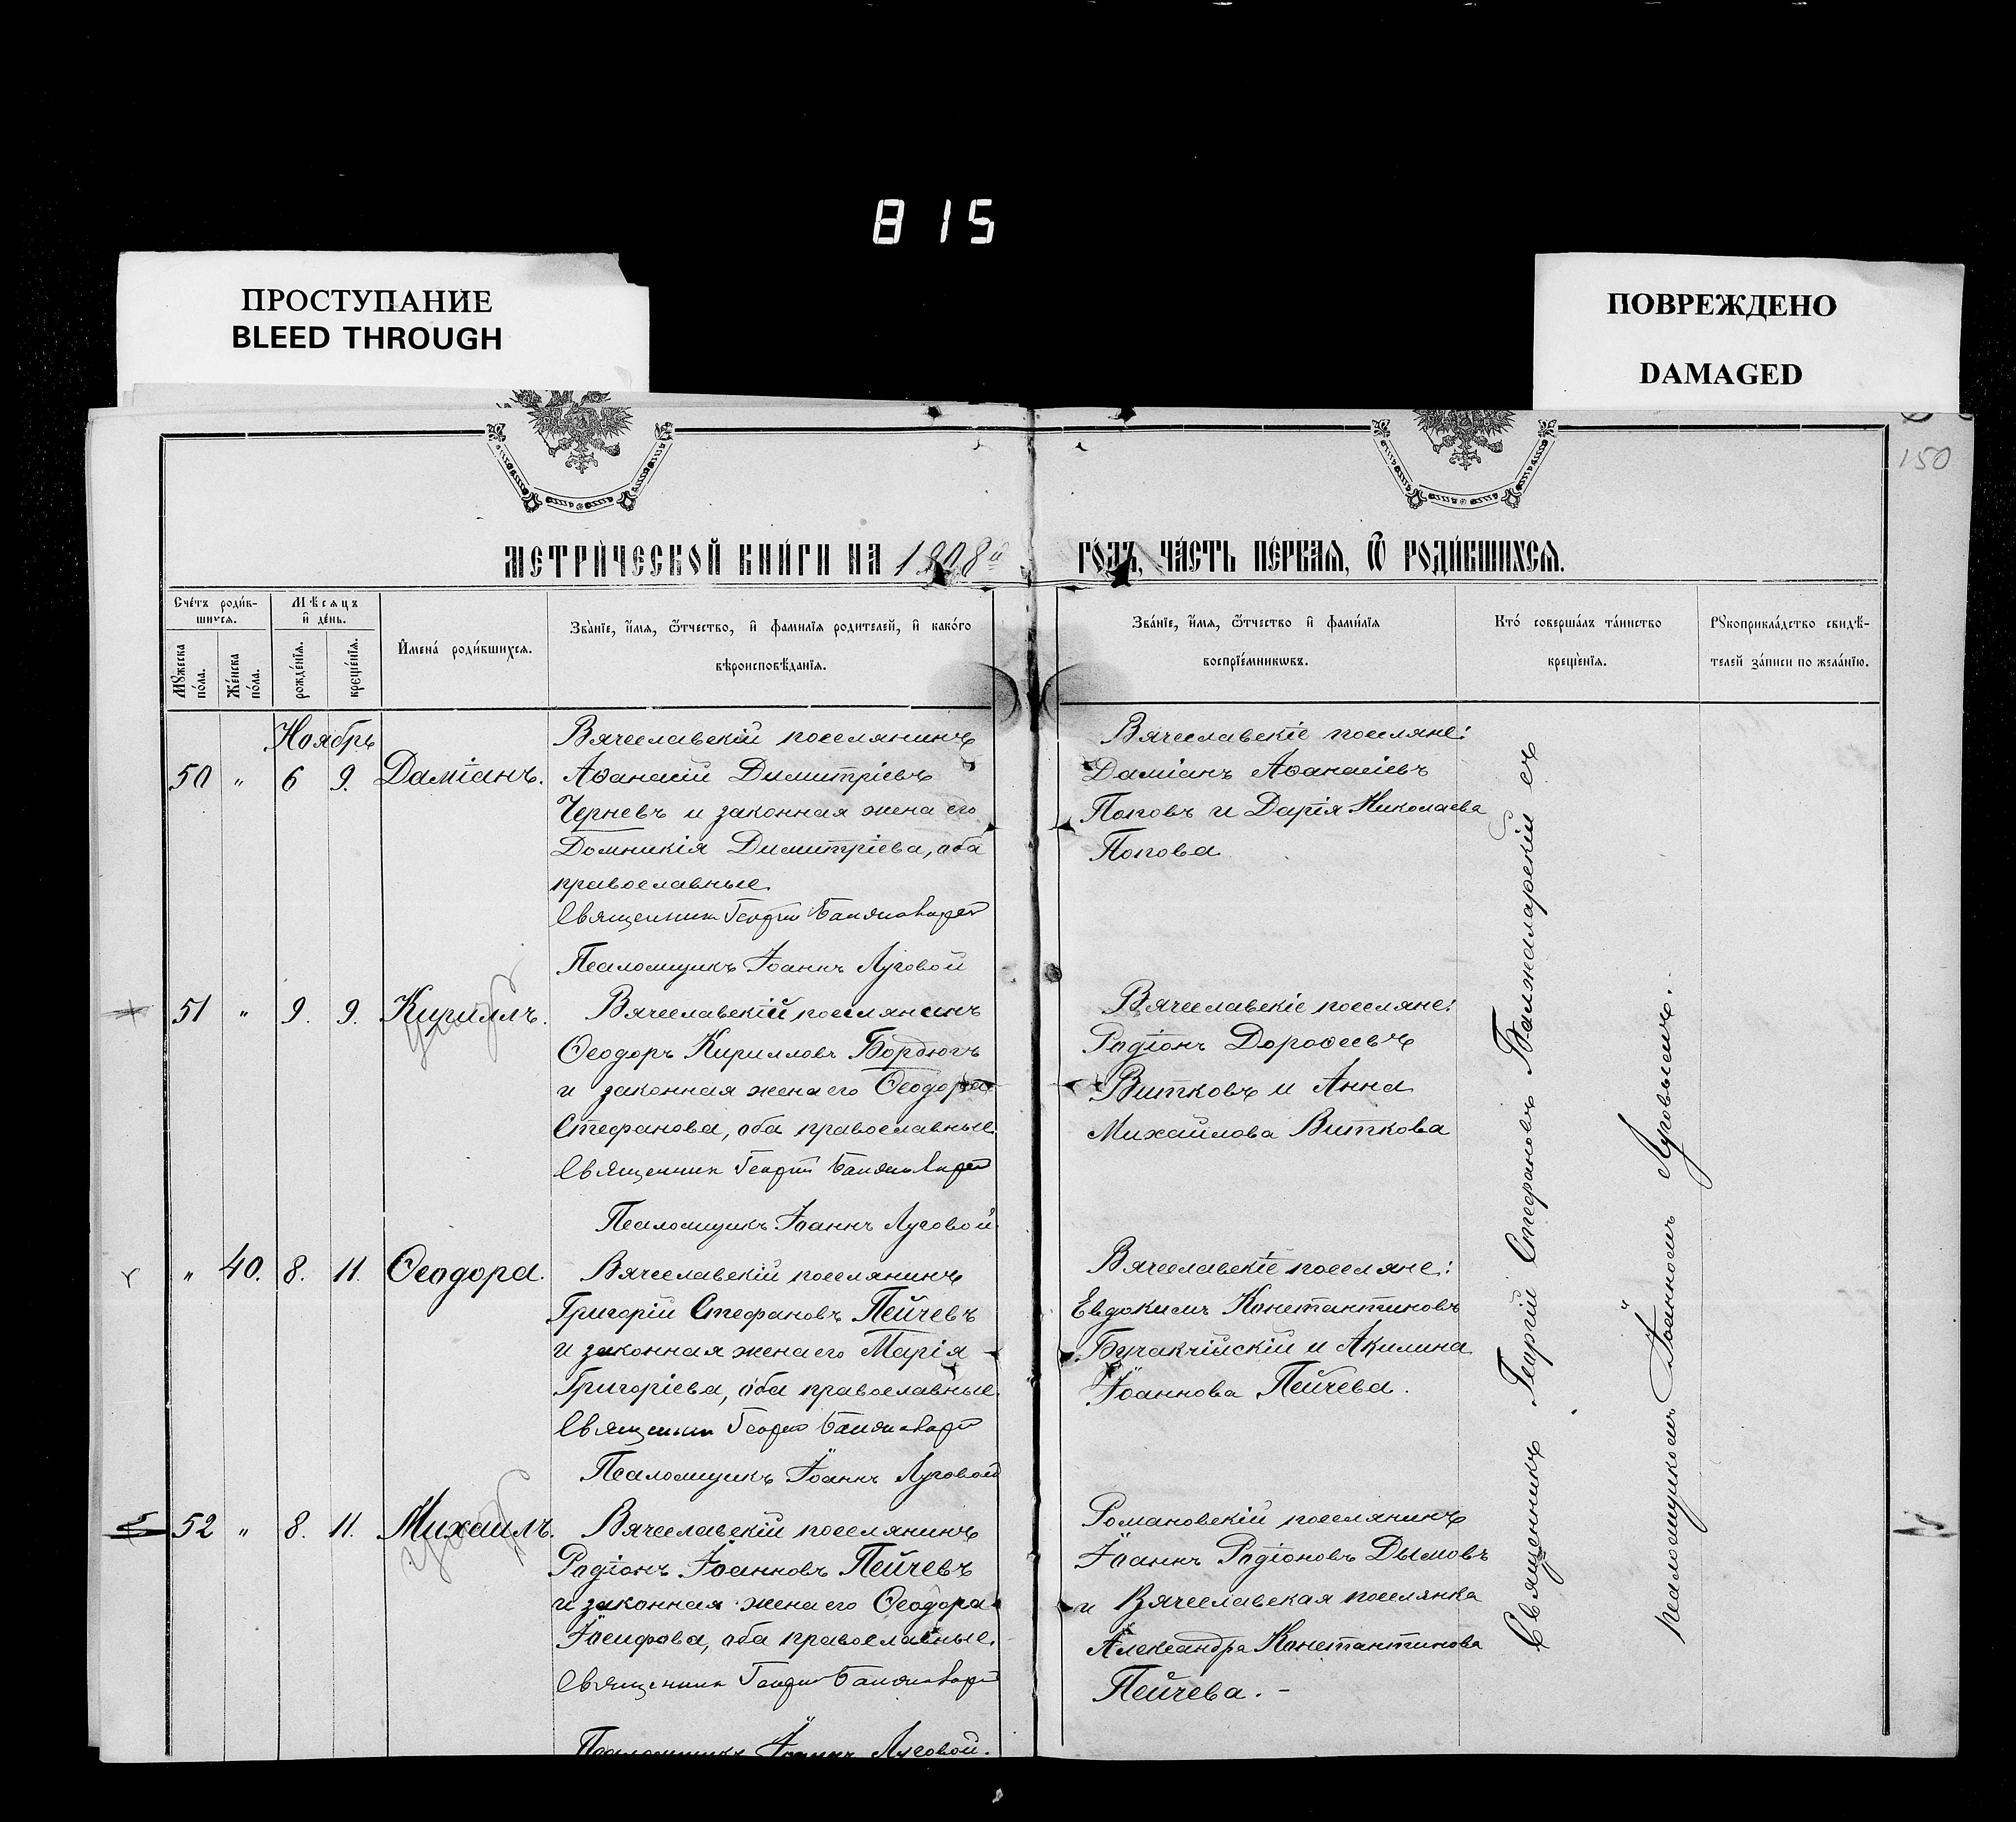 815
ПРОСТУПАНИЕ
BLEED THROUGH
ПОВРЕЖДЕНО
DAMAGED
150
МЕТРИ́ЧЕСКОЙ КНИ́ГИ НА 1908й ГО́ДЪ, ЧА́СТЬ ПЕ́РВАЯ, Ѿ РОДИ́ВШИХСЯ.
Сче́тъ роди́в-
шихся.
Мꙋ́жеска
по́ла.
Же́нска
по́ла.
Мѣ́сяцъ
и҆ де́нь.
рожде́нїя.
креще́нїя.
И҆мена́ роди́вшихся.
Зва́нїе, и҆́мя, ѻ҆́тчество, и҆ фами́лїя роди́телей, и҆ како́го
вѣроисповѣ́данїя.
Зва́нїе, и҆́мя, ѻ҆́тчество и҆ фами́лїя
воспрїе́мниковъ.
Кто́ соверша́лъ та́инство
креще́нїя.
Рꙋкоприкла́дство свидѣ́-
телей за́писи по жела́нїю.
Ноябрь
50 " 6 9. Даміанъ.
Вячеславскій поселянинъ
Аѳанасій Димитріевъ
Черневъ и законная жена его
Домникія Димитріева, оба
православные.
Священникъ Георгій
Псаломщикъ Іоаннъ Луговой
Вячеславскіе поселяне:
Даміанъ Аѳанасіевъ
Поповъ и Дарія Николаева
Попова
51 " 9. 9. Кириллъ.
Вячеславскій поселянинъ
Ѳеодоръ Кирилловъ Бордюгъ
и законная жена его Ѳеодора
Стефанова, оба православные.
Священникъ Георгій
Псаломщикъ Іоаннъ Луговой
Вячеславскіе поселяне:
Радіонъ Дороѳеевъ
Витковъ и Анна
Михайлова Виткова
" 40. 8. 11. Ѳеодора.
Вячеславскій поселянинъ
Григорій Стефановъ Пейчевъ
и законная жена его Марія
Григоріева, оба православные.
Священникъ Георгій
Псаломщикъ Іоаннъ Луговой
Вячеславскіе поселяне:
Евдокимъ Константиновъ
Бучакчійскій и Акилина
Іоаннова Пейчева.
52 " 8. 11. Михаилъ.
Вячеславскій поселянинъ
Радіонъ Іоанновъ Пейчевъ
и законная жена его Ѳеодора
Іосифова, оба православные.
Священникъ Георгій
Псаломщикъ Іоаннъ Луговой.
Романовскій поселянинъ
Іоаннъ Радіоновъ Дымовъ
и Вячеславская поселянка
Александра Константинова
Пейчева. -
Священникъ Георгій Стефановъ Баянжаларскій съ
псаломщикомъ Іоанномъ Луговымъ.